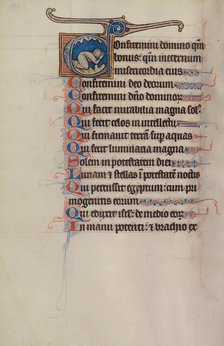 Confitemini domino qm
bonus: qm in eternum
misericordia eius
Confitemini deo deorum
Confitemini dño dominor
Qui facit mirabilia magna sol
Qui fecit celos in intellectu
Qui firmauit terrā sup aquas
Qui fecit luminaria magna
Solem in potestatem diei
Lunam & stellas i potestatē noctis
Qui percussit egyptum: cum pri
mogenitis eorum
Qui eduxit isrł: de medio eor
In manu potenti: & brachio ex